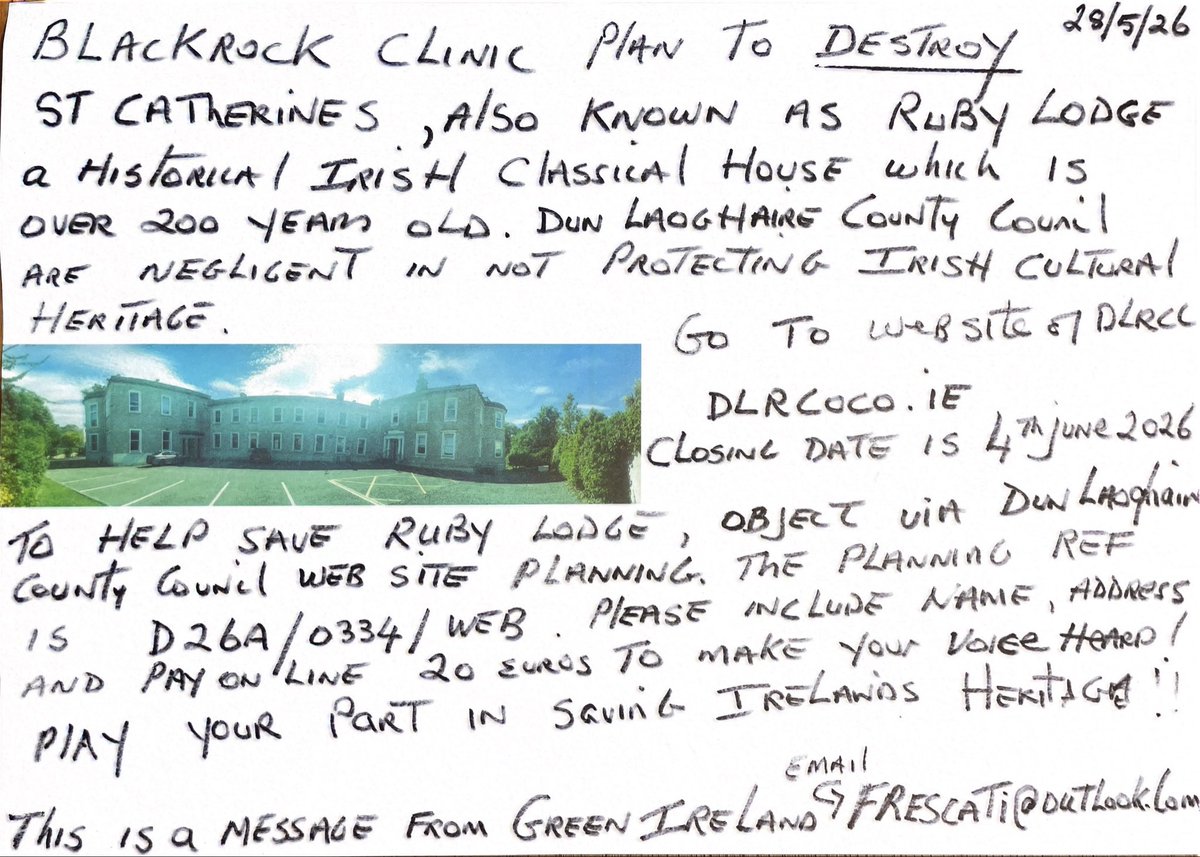 28/5/26
BLACKROCK CLINIC PLAN TO DESTROY
ST CATHERINES, Also KNOWN AS RUBY LODGE
a HISTORICAl IRISH ClassICAl HOUSE which IS
OVER 200 YEARS OLD. DUN LAOGHAIRE COUNTY COUNCIL
ARE NEGLIGENT IN NOT PROTECTING IRISH CULTURAl
HERITAGE.
GO TO WEB SITE of DLRCC
DLRCOCO.IE
CLOSING DATE IS 4th June 2026
TO HELP SAVE RUBY LODGE, OBJECT VIA DUN LAOghain
COUNTY COUNCIL WEB SITE PLANNING. THE PLANNING REF
IS D26A/0334/WEB. PLEASE INCLUDE NAME, ADDRESS
AND PAY ON LINE 20 EUROS TO MAKE YOUR VOICE HEARD!
PLAY YOUR PART IN SAVING IRELANDS HERITAGE!!
EMAIL
THIS IS a MESSAGE FROM GREEN IRELAND FRESCATI@OUTLOOK.COM